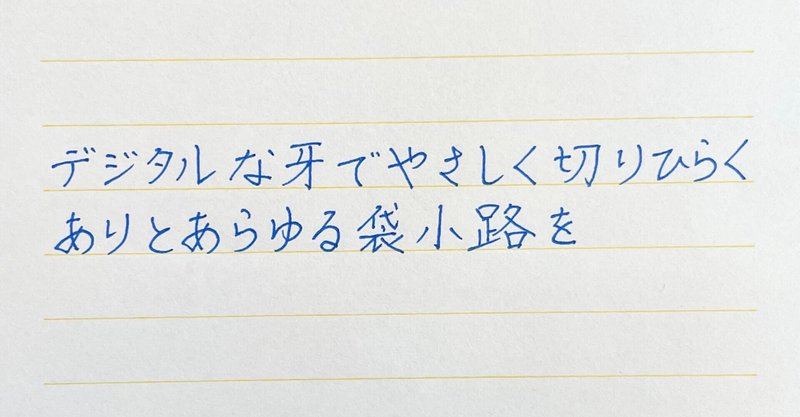 デジタルな牙でやさしく切りひらく
ありとあらゆる袋小路を